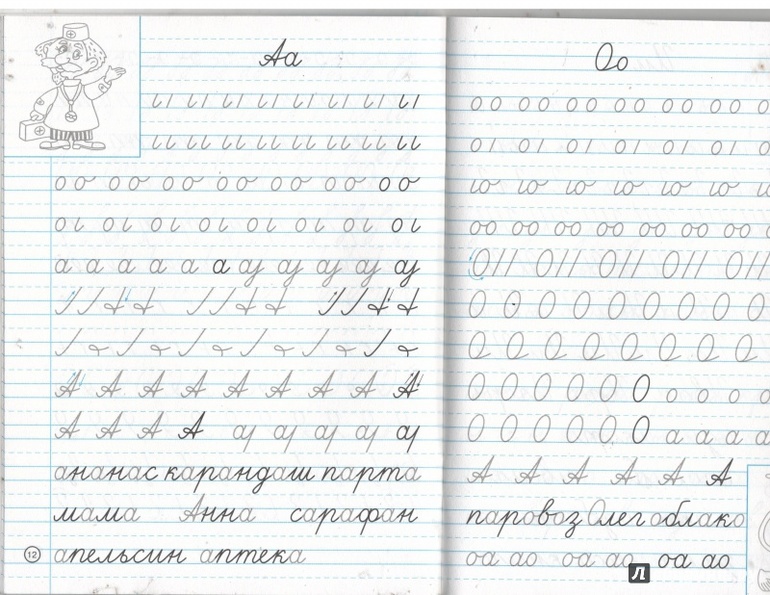 Аа
а а а а а а
А А А А А А А А А
А А А А
ананас карандаш парта
мама Анна сарафан
апельсин аптека
12
Оо
О О О О О О О О О
О О О О О О о о о о
О О О О О О а а а а
А А А А А А
паровоз Олег облако
оа ао оа ао оа ао
Л